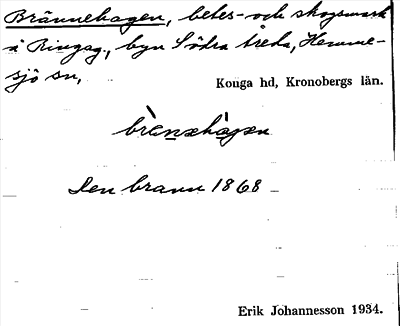 Brännehagen, betes- och skogsmark
å Ringsg., byn Södra Åreda, Hemme-
sjö sn,
Konga hd, Kronobergs län.
brænəhagən
Den brann 1868
Erik Johannesson 1934.